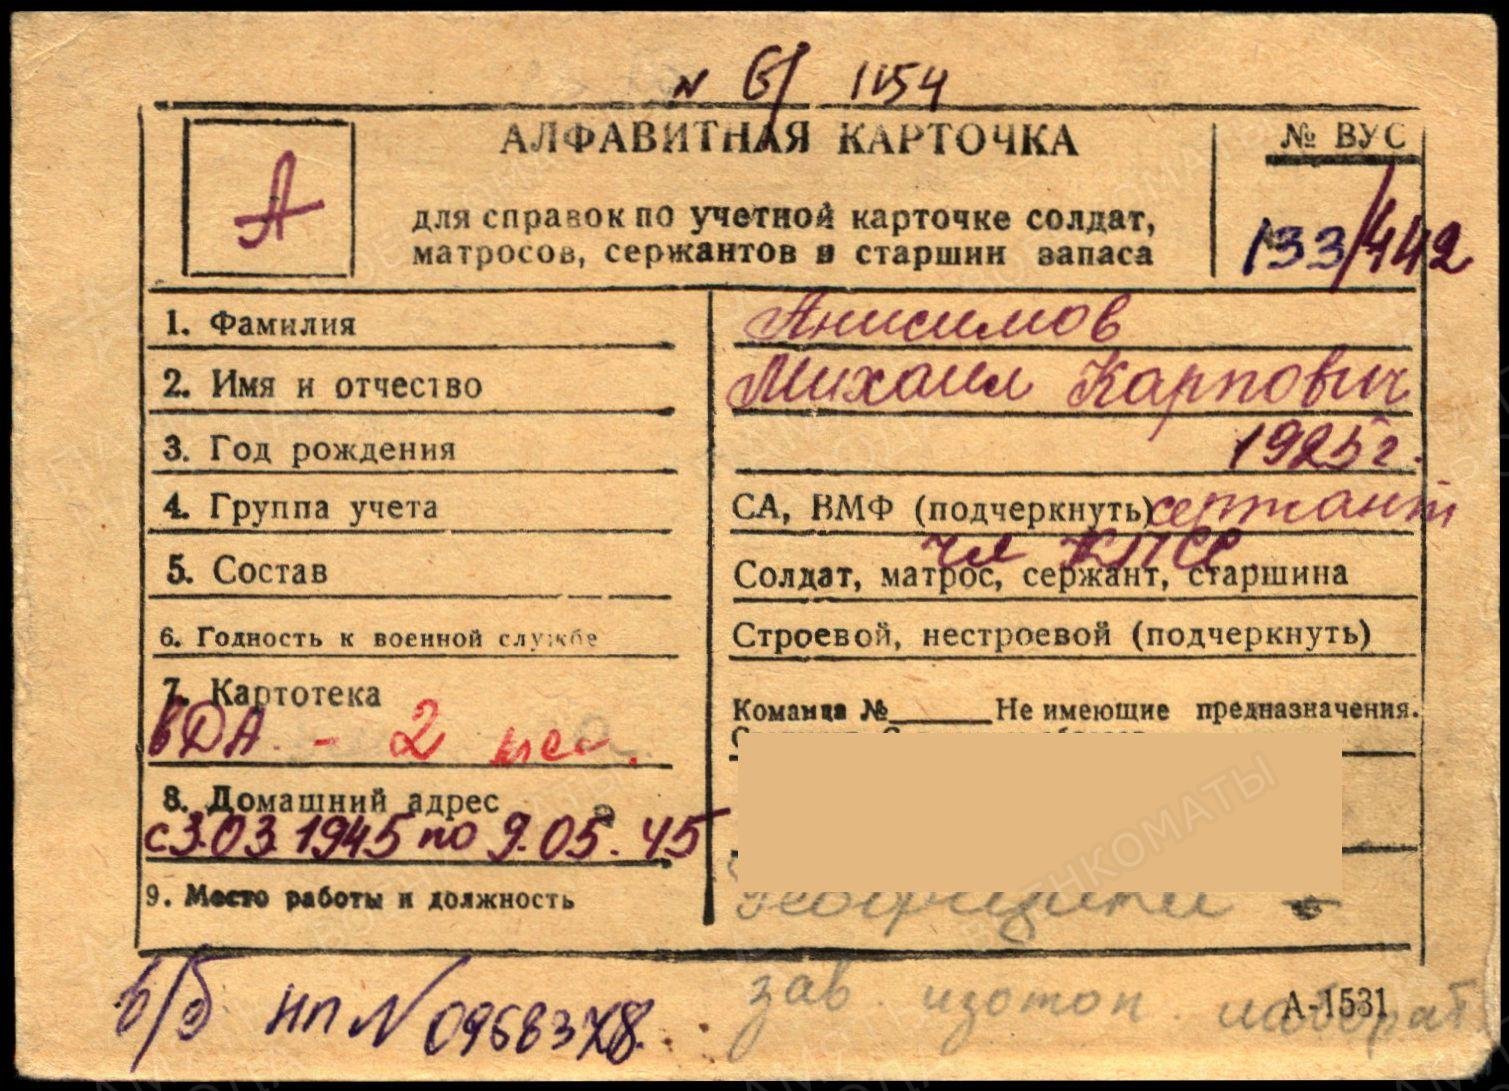 N б/ 1154
А
АЛФАВИТНАЯ КАРТОЧКА
для справок по учетной карточке солдат,
матросов, сержантов и старшин запаса
№ ВУС
133/442
1. Фамилия Анисимов
2. Имя и отчество Михаил Карпович
3. Год рождения 1925 г.
4. Группа учета СА, ВМФ (подчеркнуть) сержант
чл КПСС
5. Состав Солдат, матрос, сержант, старшина
6. Годность к военной службе Строевой, нестроевой (подчеркнуть)
7. Картотека Команда № Не имеющие предназначения.
ВДА - 2 мес.
8. Домашний адрес
с 3.03.1945 по 9.05.45
9. Место работы и должность
зав. изотоп. лаборат
А-1531
в/б НП N